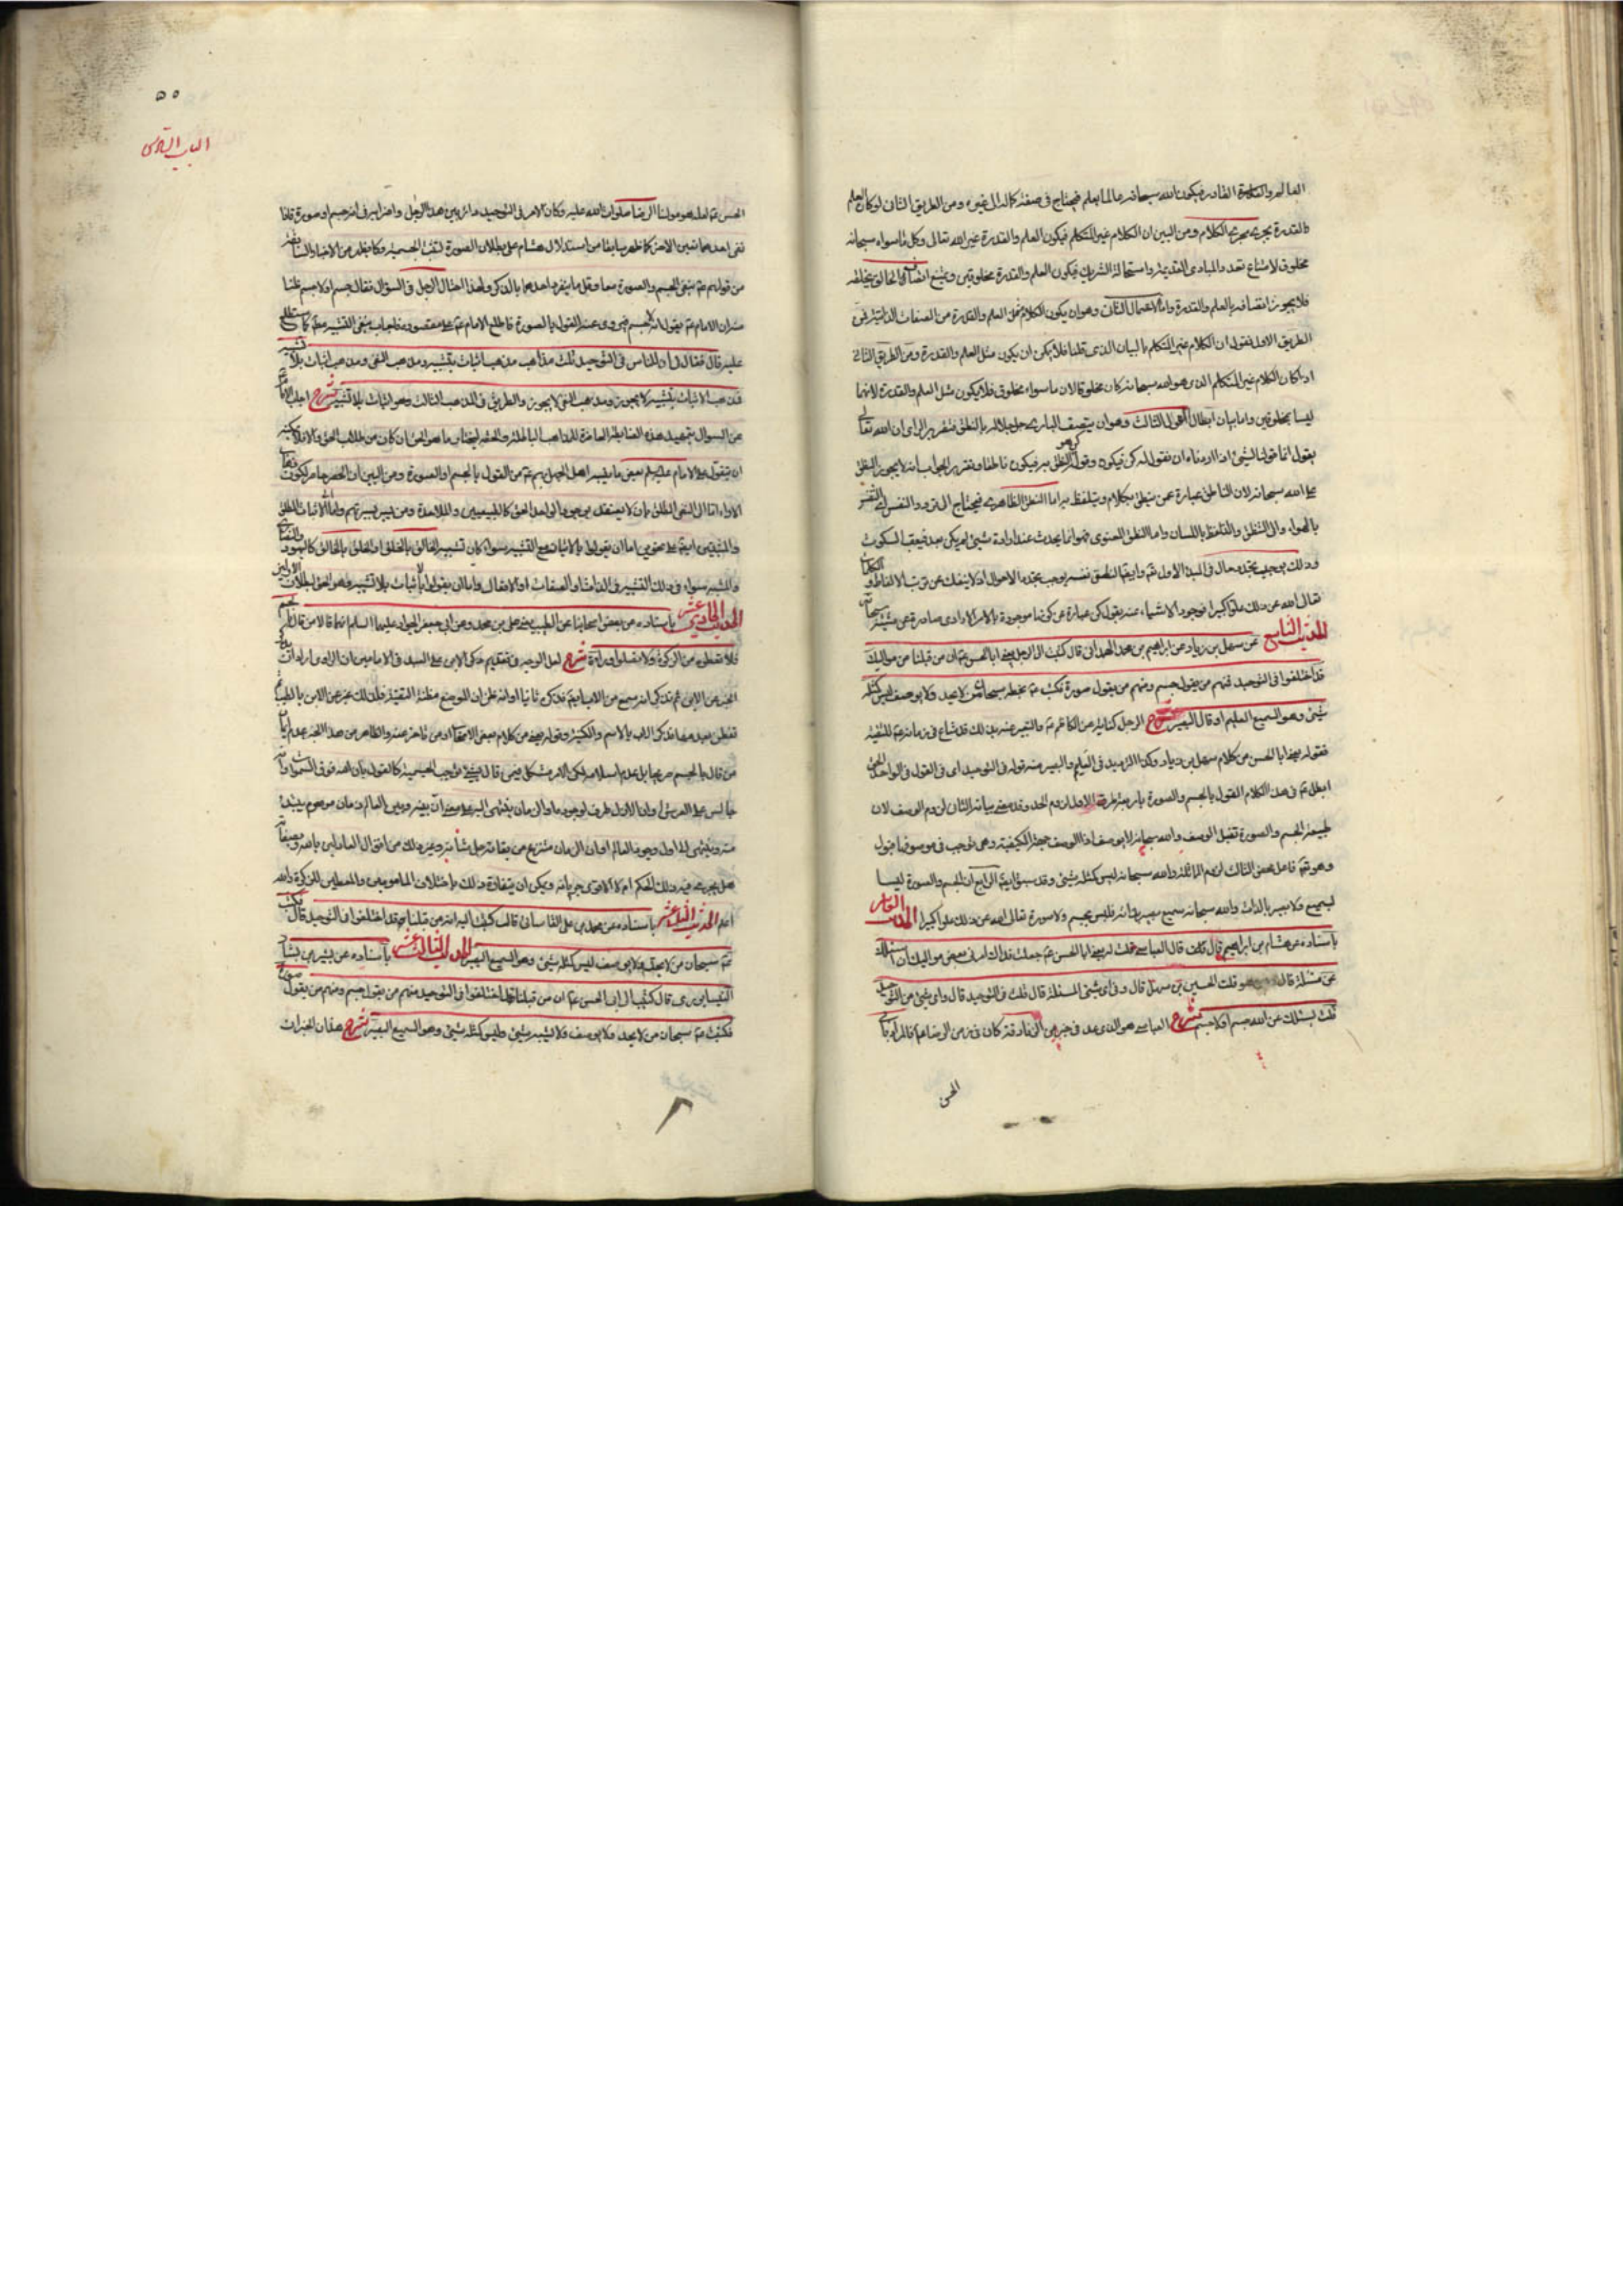 العالم والقدرة القادر فيكون الله سبحانه عالما بعلم فيحتاج في صفة كماله الى غيره ومن الطريق الثاني لو كان العلم
والقدرة يجري مجرى الكلام ومن البين ان الكلام غير المتكلم فيكون العلم والقدرة غير الله تعالى وكل ما سواه سبحانه
مخلوق لامتناع تعدد المبادي القديمة واستحالة الشريك فيكون العلم والقدرة مخلوقين ويمتنع اتصاف الخالق بخلقه
فلا يجوز اتصافه بالعلم والقدرة واما الاحتمال الثاني وهو ان يكون الكلام مثل العلم والقدرة من الصفات الذاتية فمن
الطريق الاول نقول ان الكلام غير المتكلم بالبيان الذي قلنا فلا يمكن ان يكون مثل العلم والقدرة ومن الطريق الثاني
اذا كان الكلام غير المتكلم الذي هو الله سبحانه كان مخلوقا لان ما سواه مخلوق فلا يكون مثل العلم والقدرة لانهما
ليسا بمخلوقين واما بيان ابطال القول الثالث وهو ان يتصف الباري جل جلاله بالنطق فتقرير الراي ان الله تعالى
يقول انما قولنا لشيء اذا اردناه ان نقول له كن فيكون وقول كن هو النطق به فيكون ناطقا وتقرير الجواب انه لا يجوز النطق
على الله سبحانه لان الناطق عبارة عمن ينطق بكلام ويتلفظ به اما النطق الظاهري فيحتاج الى تردد النفس
بالهواء والى التنطق والتلفظ باللسان واما النطق المعنوي فهو انما يحدث عند ارادة شيء لم يكن بعد فيعقب السكوت
وذلك يوجب تجدد حال في المبدأ الاول تع وايضا النطق نفسه يوجب تجدد الاحوال اذ لا ينفك عن ترتب الالفاظ و
تعالى الله عن ذلك علوا كبيرا فوجود الاشياء عنه بقول كن عبارة عن كونها موجودة بالامر الارادي صادرة عن مشيته سبحانه
الحديث التاسع عن سهل بن زياد عن ابراهيم بن محمد الهمداني قال كتبت الى الرجل يعني ابا الحسن ع ان من قبلنا من مواليك
قد اختلفوا في التوحيد فمنهم من يقول جسم ومنهم من يقول صورة فكتب ع بخطه سبحان من لا يحد ولا يوصف ليس كمثله
شيء وهو السميع العليم او قال البصير شرح الرجل كناية عن الكاظم ع والتعبير عنه بذلك قد شاع في زمانه ع للتقية
فقوله يعني ابا الحسن من كلام سهل بن زياد وكذا الترديد في العليم والبصير منه قوله في التوحيد اي في القول في الواحد الحق
ابطل ع في هذا الكلام القول بالجسم والصورة باربعة طرق الاول لزوم الحد وقد مضى بيانه الثاني لزوم الوصف لان
طبيعة الجسم والصورة تقبل الوصف والله سبحانه لا يوصف اذ الوصف جهة الكيفية وهي توجب في موصوفها
الثالث لزوم المماثلة والله سبحانه ليس كمثله شيء وقد سبق ايضا الرابع ان الجسم والصورة ليسا
بسميع ولا بصير بالذات والله سبحانه سميع بصير بذاته فليس بجسم ولا صورة تعالى الله عن ذلك علوا كبيرا الحديث العاشر
باسناده عن هشام بن ابراهيم قال قال العباسي قلت له يعني ابا الحسن ع جعلت فداك امرني بعض مواليك ان اسئلك
عن مسئلة قال ومن هو قلت الحسن بن سهل قال وفي اي شيء المسئلة قال قلت في التوحيد قال واي شيء من التوحيد
قال يسئلك عن الله جسم او لا جسم شرح العباسي هو الذي عد في كان في زمن الرضا ع فالمراد بابي
الحسن

٥٥
الباب السادس
الحسن ع لعله هو مولينا الرضا صلوات الله عليه وكان الامر في التوحيد دائر بين هذا الرجل واضرابه في انه جسم او صورة فاذا
نفى احدهما تعين الاخر كما ظهر سابقا من استدلال هشام على بطلان الصورة لنفي الجسمية وكما يظهر من الاخبار السابقة
من قولهم ع بنفي الجسم والصورة معا وقل ما يفرد احدهما بالذكر ولهذا احتال الرجل في السؤال فقال جسم او لا جسم ظنا
منه ان الامام ع يقول انه لا جسم فيروى عنه القول بالصورة فاطلع الامام ع على مقصوده فاجاب بنفي التشبيه مط كما ستطلع
عليه قال فقال لي ان للناس في التوحيد ثلث مذاهب مذهب اثبات بتشبيه ومذهب النفي ومذهب اثبات بلا تشبيه
فمذهب الاثبات بتشبيه لا يجوز ومذهب النفي لا يجوز والطريق في المذهب الثالث وهو اثبات بلا تشبيه شرح اجاب الامام
عن السؤال بتمهيد هذه الضابطة العامة للمذاهب الباطلة والحقة ليختار ما هو الحق ان كان من طلاب الحق والا فلا يمكنه
ان يتقول على الامام عليه السلم بعض ما ينسبه اهل الجهل اليهم ع من القول بالجسم او الصورة ومن البين ان الحصر حاصر لكون
الاراء اما الى النفي المطلق بان لا يعتقد بوجود الواحد الحق كالطبيعيين والملاحدة ومن يسير بسيرتهم واما الى الاثبات المطلق
والمثبتين ايضا على نحوين اما ان يقولوا بالاثبات مع التشبيه سواء كان تشبيه الخالق بالخلق او الخلق بالخالق كاليهود والنصارى
والمشبه سواء في ذلك التشبيه في الذات او الصفات او الافعال واما ان يقولوا باثبات بلا تشبيه وهو الحق لبطلان الاولين
الحديث الحادي عشر باسناده عن بعض اصحابنا عن الطيب يعني علي بن محمد وعن ابي جعفر الجواد عليهما السلم انهما قالا من قال بالجسم
فلا تعطوه من الزكوة ولا تصلوا وراءه شرح لعل الوجه في تقديم ذكر الابن على السيد في الامامين ان الراوي اراد ان
الخبر عن الابن ثم تذكر انه سمع من الاب ايضا فذكره ثانيا او انه ظن ان الموضع مظنة التقية فلذلك عبر عن الابن بالطيب ثم
تفطن بعد هذا فذكر الاب بالاسم والكنية وقوله يعني من كلام بعض الاصحاب او من تاخر عنه والظاهر من هذا الخبر عدم ايمان
من قال بالجسم صريحا بل عدم اسلامه لكن الامر مشكل فيمن قال بشيء يوجب الجسمية كالقول بان الله فوق السموات وانه
جالس على العرش وان الازل ظرف لوجوده وان الزمان ينتهي اليه على معنى ان بينه وبين العالم زمان موهوم يبتدء
منه وينتهي الى اول وجود العالم او ان الزمان منتزع من بقائه جل شأنه وغير ذلك من اقوال
هل يجري فيه ذلك الحكم ام لا الاقوى جريانه ويمكن ان يتفاوت ذلك باختلاف المأمومين والمعطين للزكوة والله
اعلم الحديث الثاني عشر باسناده عن محمد بن علي القاساني قال كتبت اليه ان من قبلنا قد اختلفوا في التوحيد قال فكتب
ع سبحان من لا يحد ولا يوصف ليس كمثله شيء وهو السميع البصير الحديث الثالث عشر باسناده عن بشر بن بشار
النيسابوري قال كتبت الى ابي الحسن ع ان من قبلنا قد اختلفوا في التوحيد منهم من يقول جسم ومنهم من يقول صورة
فكتب ع سبحان من لا يحد ولا يوصف ولا يشبهه شيء وليس كمثله شيء وهو السميع البصير شرح هذان الخبران